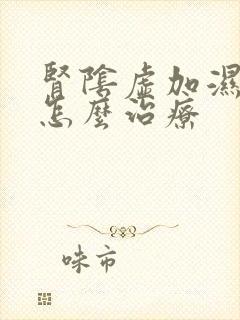 腎陰虛加濕
怎麼治療
味市